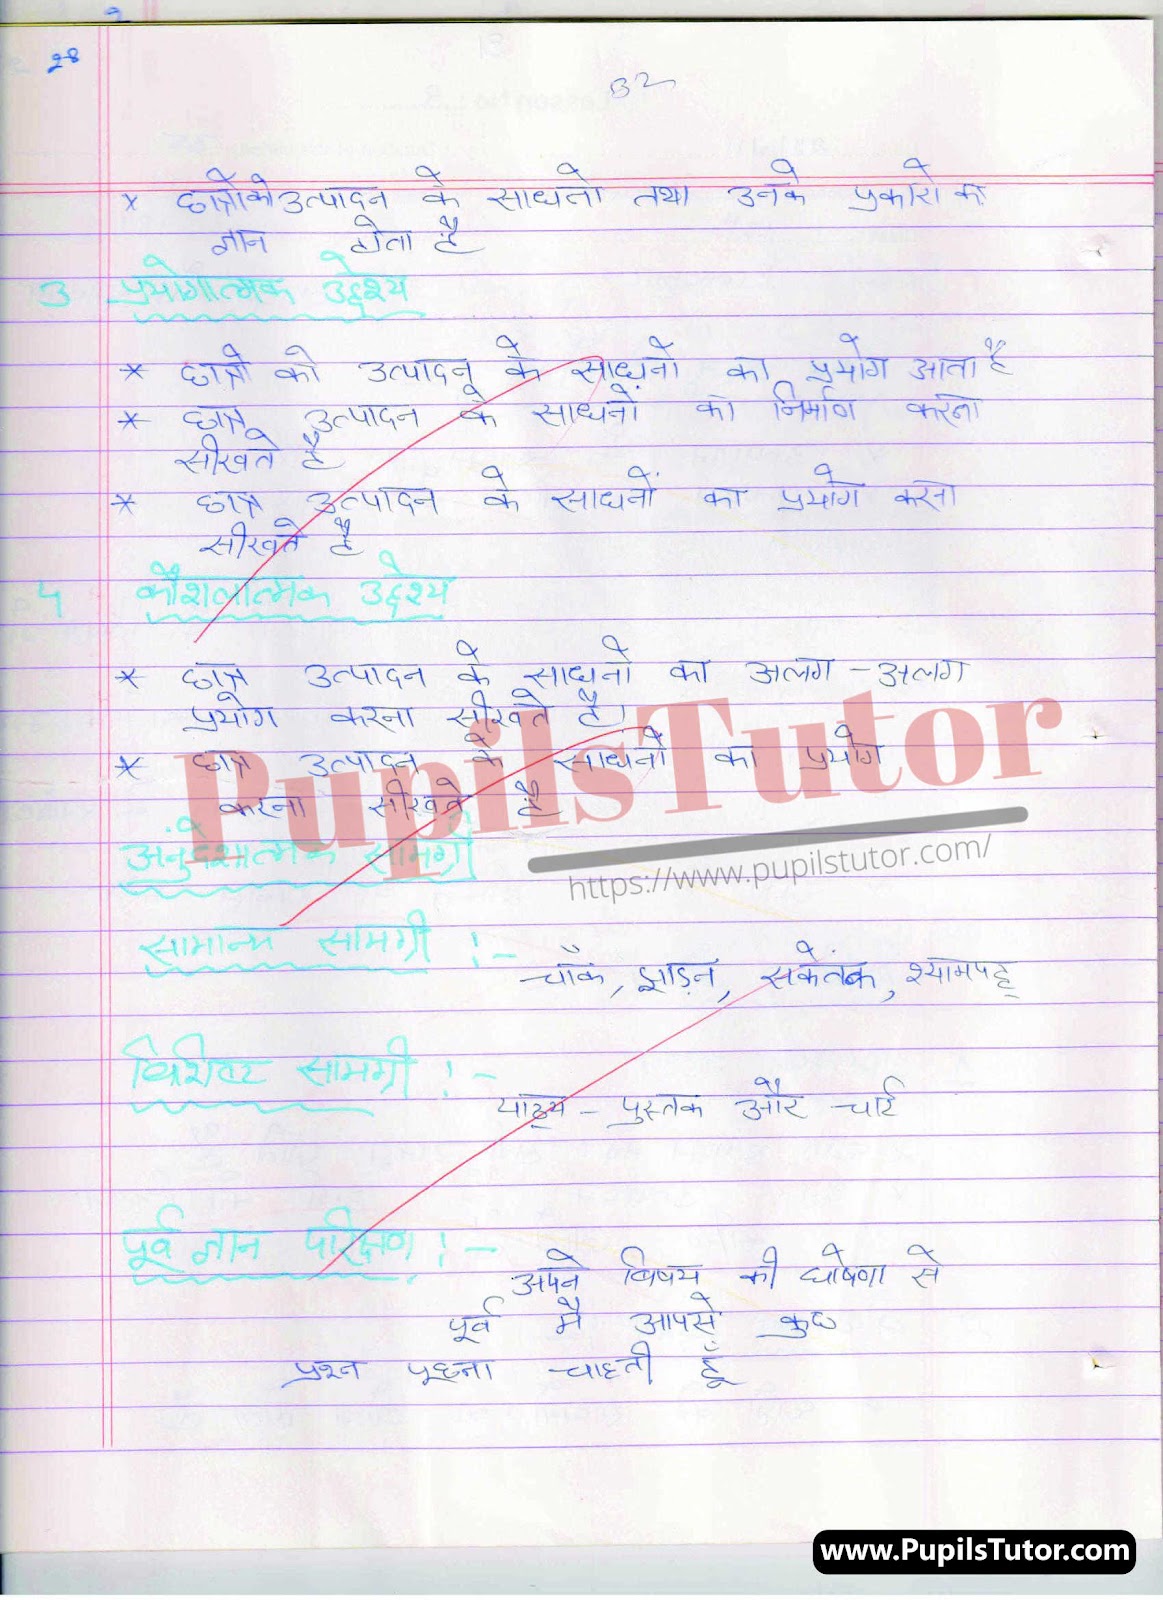 28
32
* छात्रोको उत्पादन के साधनो तथा उनके प्रकारो का
ज्ञान होता है
3 प्रयोगात्मक उद्देश्य
* छात्रो को उत्पादन के साधनो का प्रयोग आता है
* छात्र उत्पादन के साधनों का निर्माण करना
सीखते है
* छात्र उत्पादन के साधनों का प्रयोग करना
सीखते है
4 कौशलात्मक उद्देश्य
* छात्र उत्पादन के साधनो का अलग - अलग
प्रयोग करना सीखते है।
* छात्र उत्पादन के साधनो का प्रयोग
करना सीखते है
PupilsTutor
अनुंदेशात्मक सामग्री
https://www.pupilstutor.com/
सामान्य सामग्री :-
चॉक, झाड़न, संकेतक, श्यामपट्ट
विशिष्ट सामग्री :-
पाठ्य - पुस्तक और चार्ट
पूर्व ज्ञान परिक्षण :-
अपने विषय की घोषणा से
पूर्व मै आपसे कुछ
प्रश्न पूछना चाहती हूँ
www.PupilsTutor.com